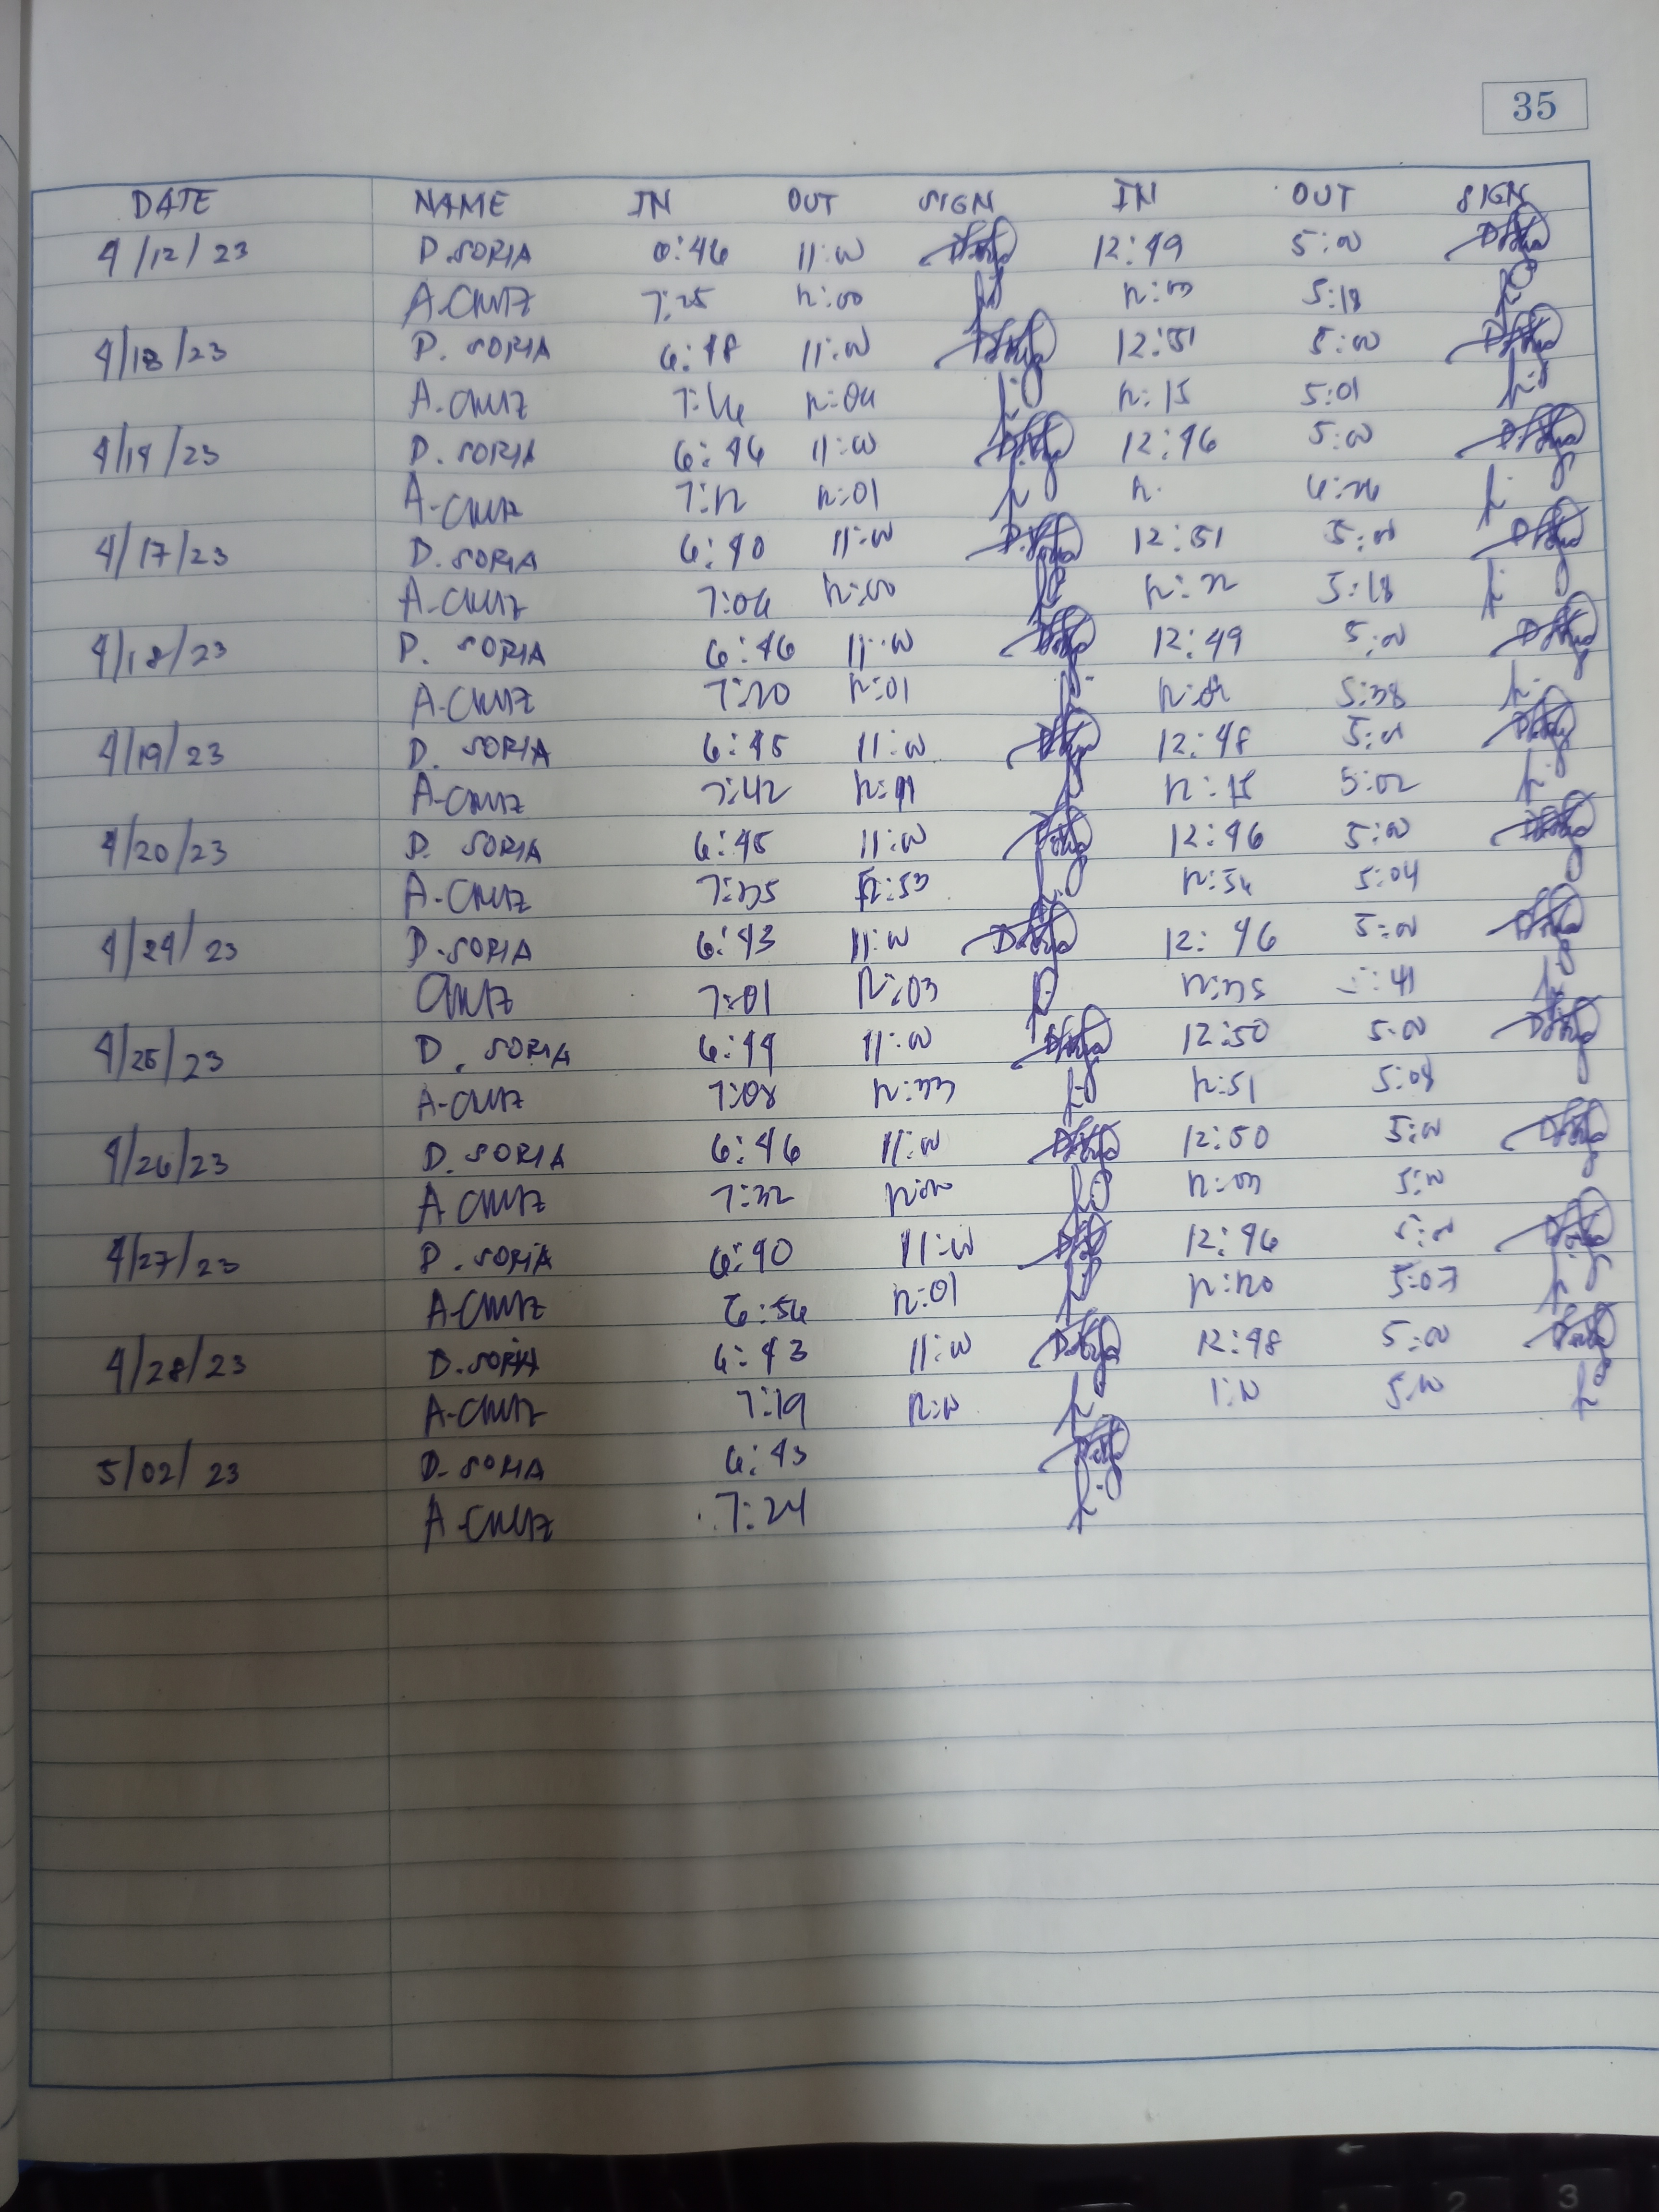 35
DATE NAME IN OUT SIGN IN OUT SIGN
4/12/23 D. SORIA 6:46 11:00 12:49 5:00
A. CRUZ 7:25 12:00 5:18
4/13/23 D. SORIA 6:48 11:00 12:51 5:00
A. CRUZ 12:04 12:15 5:01
4/14/23 D. SORIA 6:46 11:00 12:46 5:00
A. CRUZ 7:12 12:01
4/17/23 D. SORIA 6:40 11:00 12:51 5:00
A. CRUZ 7:04 12:00 5:18
4/18/23 D. SORIA 6:46 11:00 12:49 5:00
A. CRUZ 7:20 12:01 5:38
4/19/23 D. SORIA 6:45 11:00 12:48 5:00
A. CRUZ 7:42 5:02
4/20/23 D. SORIA 6:45 11:00 12:46 5:00
A. CRUZ 7:35 12:53 12:54 5:04
4/24/23 D. SORIA 6:43 11:00 12:46 5:00
CRUZ 7:01 12:03 :41
4/25/23 D. SORIA 6:44 11:00 12:50 5:00
A. CRUZ 7:08 12:33 12:51 5:08
4/26/23 D. SORIA 6:46 11:00 12:50 5:00
A. CRUZ 7:32 12:00 5:00
4/27/23 D. SORIA 6:40 11:00 12:46 5:00
A. CRUZ 6:54 12:01 12:20 5:07
4/28/23 D. SORIA 6:43 11:00 12:48 5:00
A. CRUZ 7:19 12:00 1:00 5:00
5/02/23 D. SORIA 6:43
A. CRUZ 7:24
1 2 3